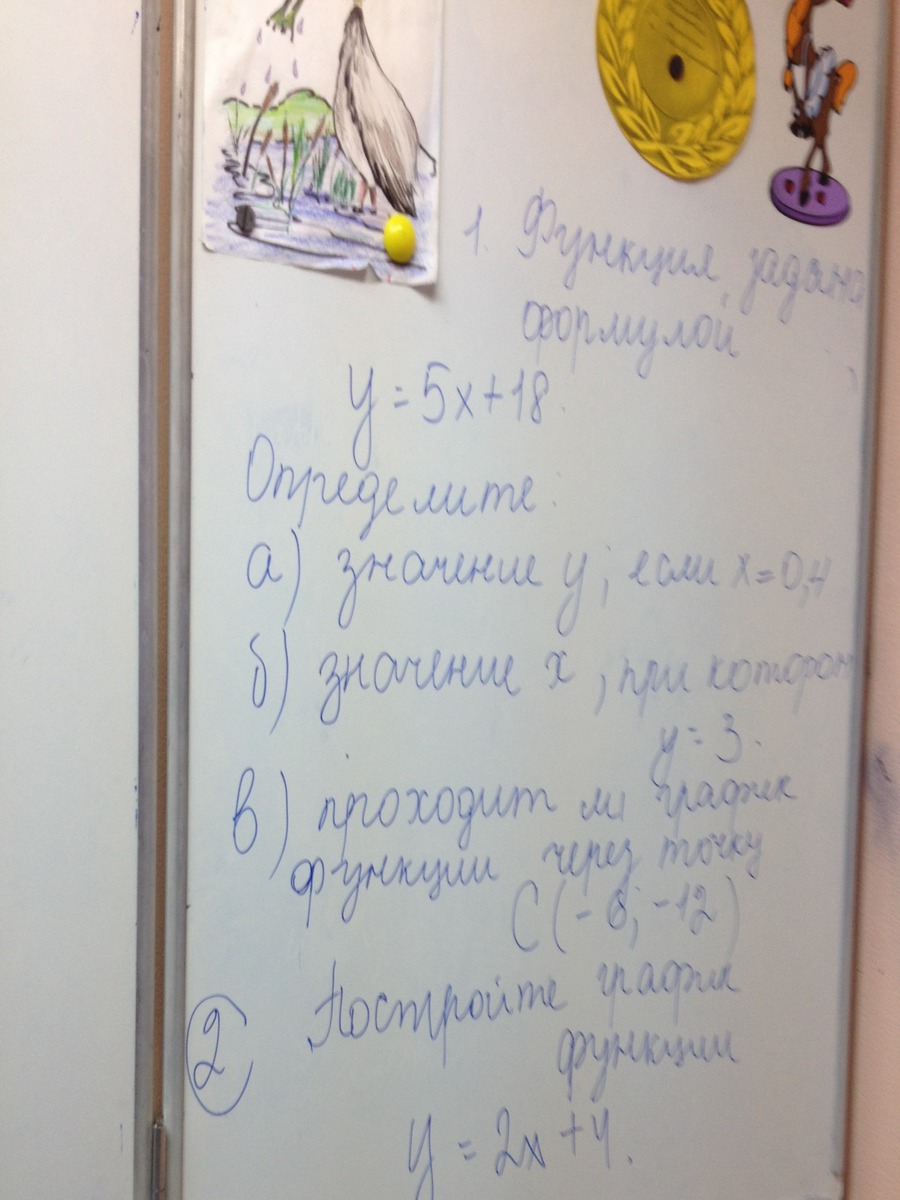 1. Функция задана
формулой
y = 5x + 18.
Определите:
а) значение y, если x = 0,4
б) значение x, при котором
y = 3.
в) проходит ли график
функции через точку
C (-6; -12)
2 Постройте график
функции
y = 2x + 4.